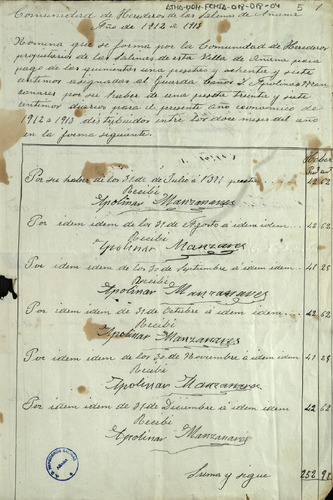 ATHA-DOH-FCHSA-018-09-04
5
1
Comunidad de Herederos de las Salinas de Añana
Año de 1912 á 1913
Nómina que se forma por la Comunidad de Herederos
propietarios de las Salinas de esta Villa de Añana para
pago de las quinientas una pesetas y ochenta y siete
centimos asignadas al Guarda Apolinar Man
zanares por su haber de una peseta treinta y siete
centimos diarios para el presente año economico de
1912 á 1913 distribuidos entre los doce meses del año
en la forma siguiente.
Haber
Por su haber de los 31 de Julio á 1'37 pesetas 42 62
Recibí
Apolinar Manzanares
Por idem idem de los 31 de Agosto á idem idem 42 62
Recibí
Apolinar Manzanares
Por idem idem de los 30 de Septiembre á idem idem 41 25
Recibí
Apolinar Manzanares
Por idem idem de 31 de Octubre á idem idem 42 62
Recibí
Apolinar Manzanares
Por idem idem de los 30 de Noviembre á idem idem 41 25
Recibí
Apolinar Manzanares
Por idem idem de 31 de Diciembre á idem idem 42 62
Recibí
Apolinar Manzanares
Suma y sigue 252 98